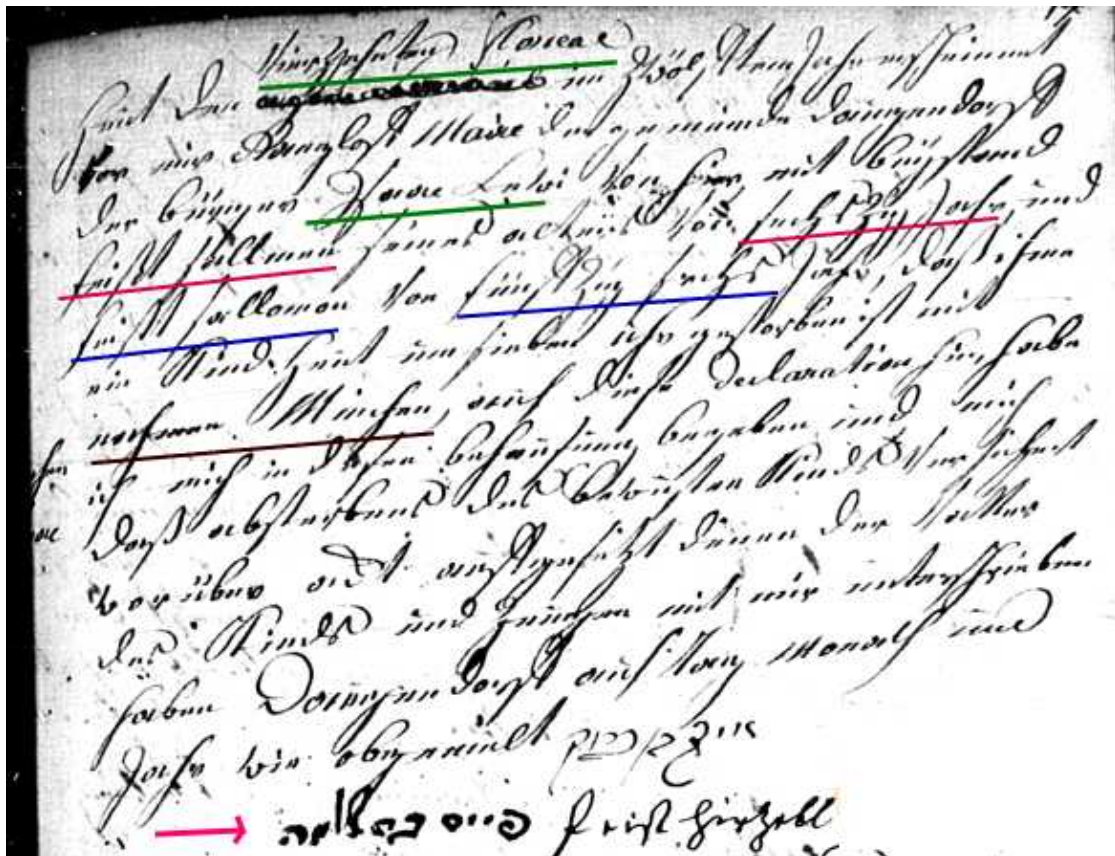 Vierzehnten Floreal
Heut den im Zwölften Jahr erscheinnt
Vor mir Maire der gemeinde Dauendorff
der bürger Isaac Levi Von hier mit beÿstand
feist sallmon seines alters Von sechszig Jahr und
feist sallomon Von fünffzig sechs Jahr, daß ihme
ein Kind heut um sieben uhr gestorben ist mit
nahmen Minchen, auf diese declaration hin habe
ich mich in dessen behausung begeben und mich
daß absterbens des bewusten Kinds Versichert
worüber act auffgesetzt denen der Vatter
des Kinds und Zeugen mit mir unterschrieben
haben Dauendorff auf Tag Monath und
Jahr wie obgemelt
feist hirtzell